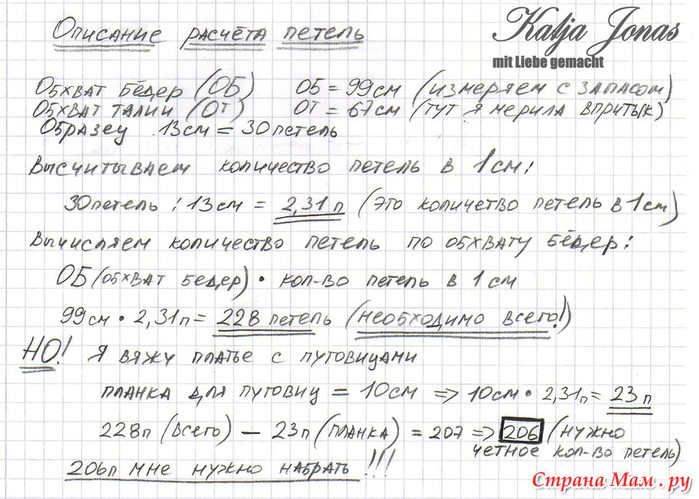 Описание расчёта петель
Katja Jonas
mit Liebe gemacht
Обхват бёдер (ОБ) ОБ = 99см (измеряем с запасом)
Обхват талии (ОТ) ОТ = 67см (тут я мерила впритык)
Образец 13см = 30петель
Высчитываем количество петель в 1см:
30петель : 13см = 2,31п (это количетво петель в 1см)
Вычисляем количество петель по обхвату бёдер:
ОБ (обхват бедер) • кол-во петель в 1 см
99см • 2,31п = 228 петель (необходимо всего!)
НО! Я вяжу платье с пуговицами
планка для пуговиц = 10см => 10см • 2,31п = 23п
228п (всего) — 23п (планка) = 207 => 206 (нужно
четное кол-во петель)
206п мне нужно набрать!!!
Страна Мам.ру